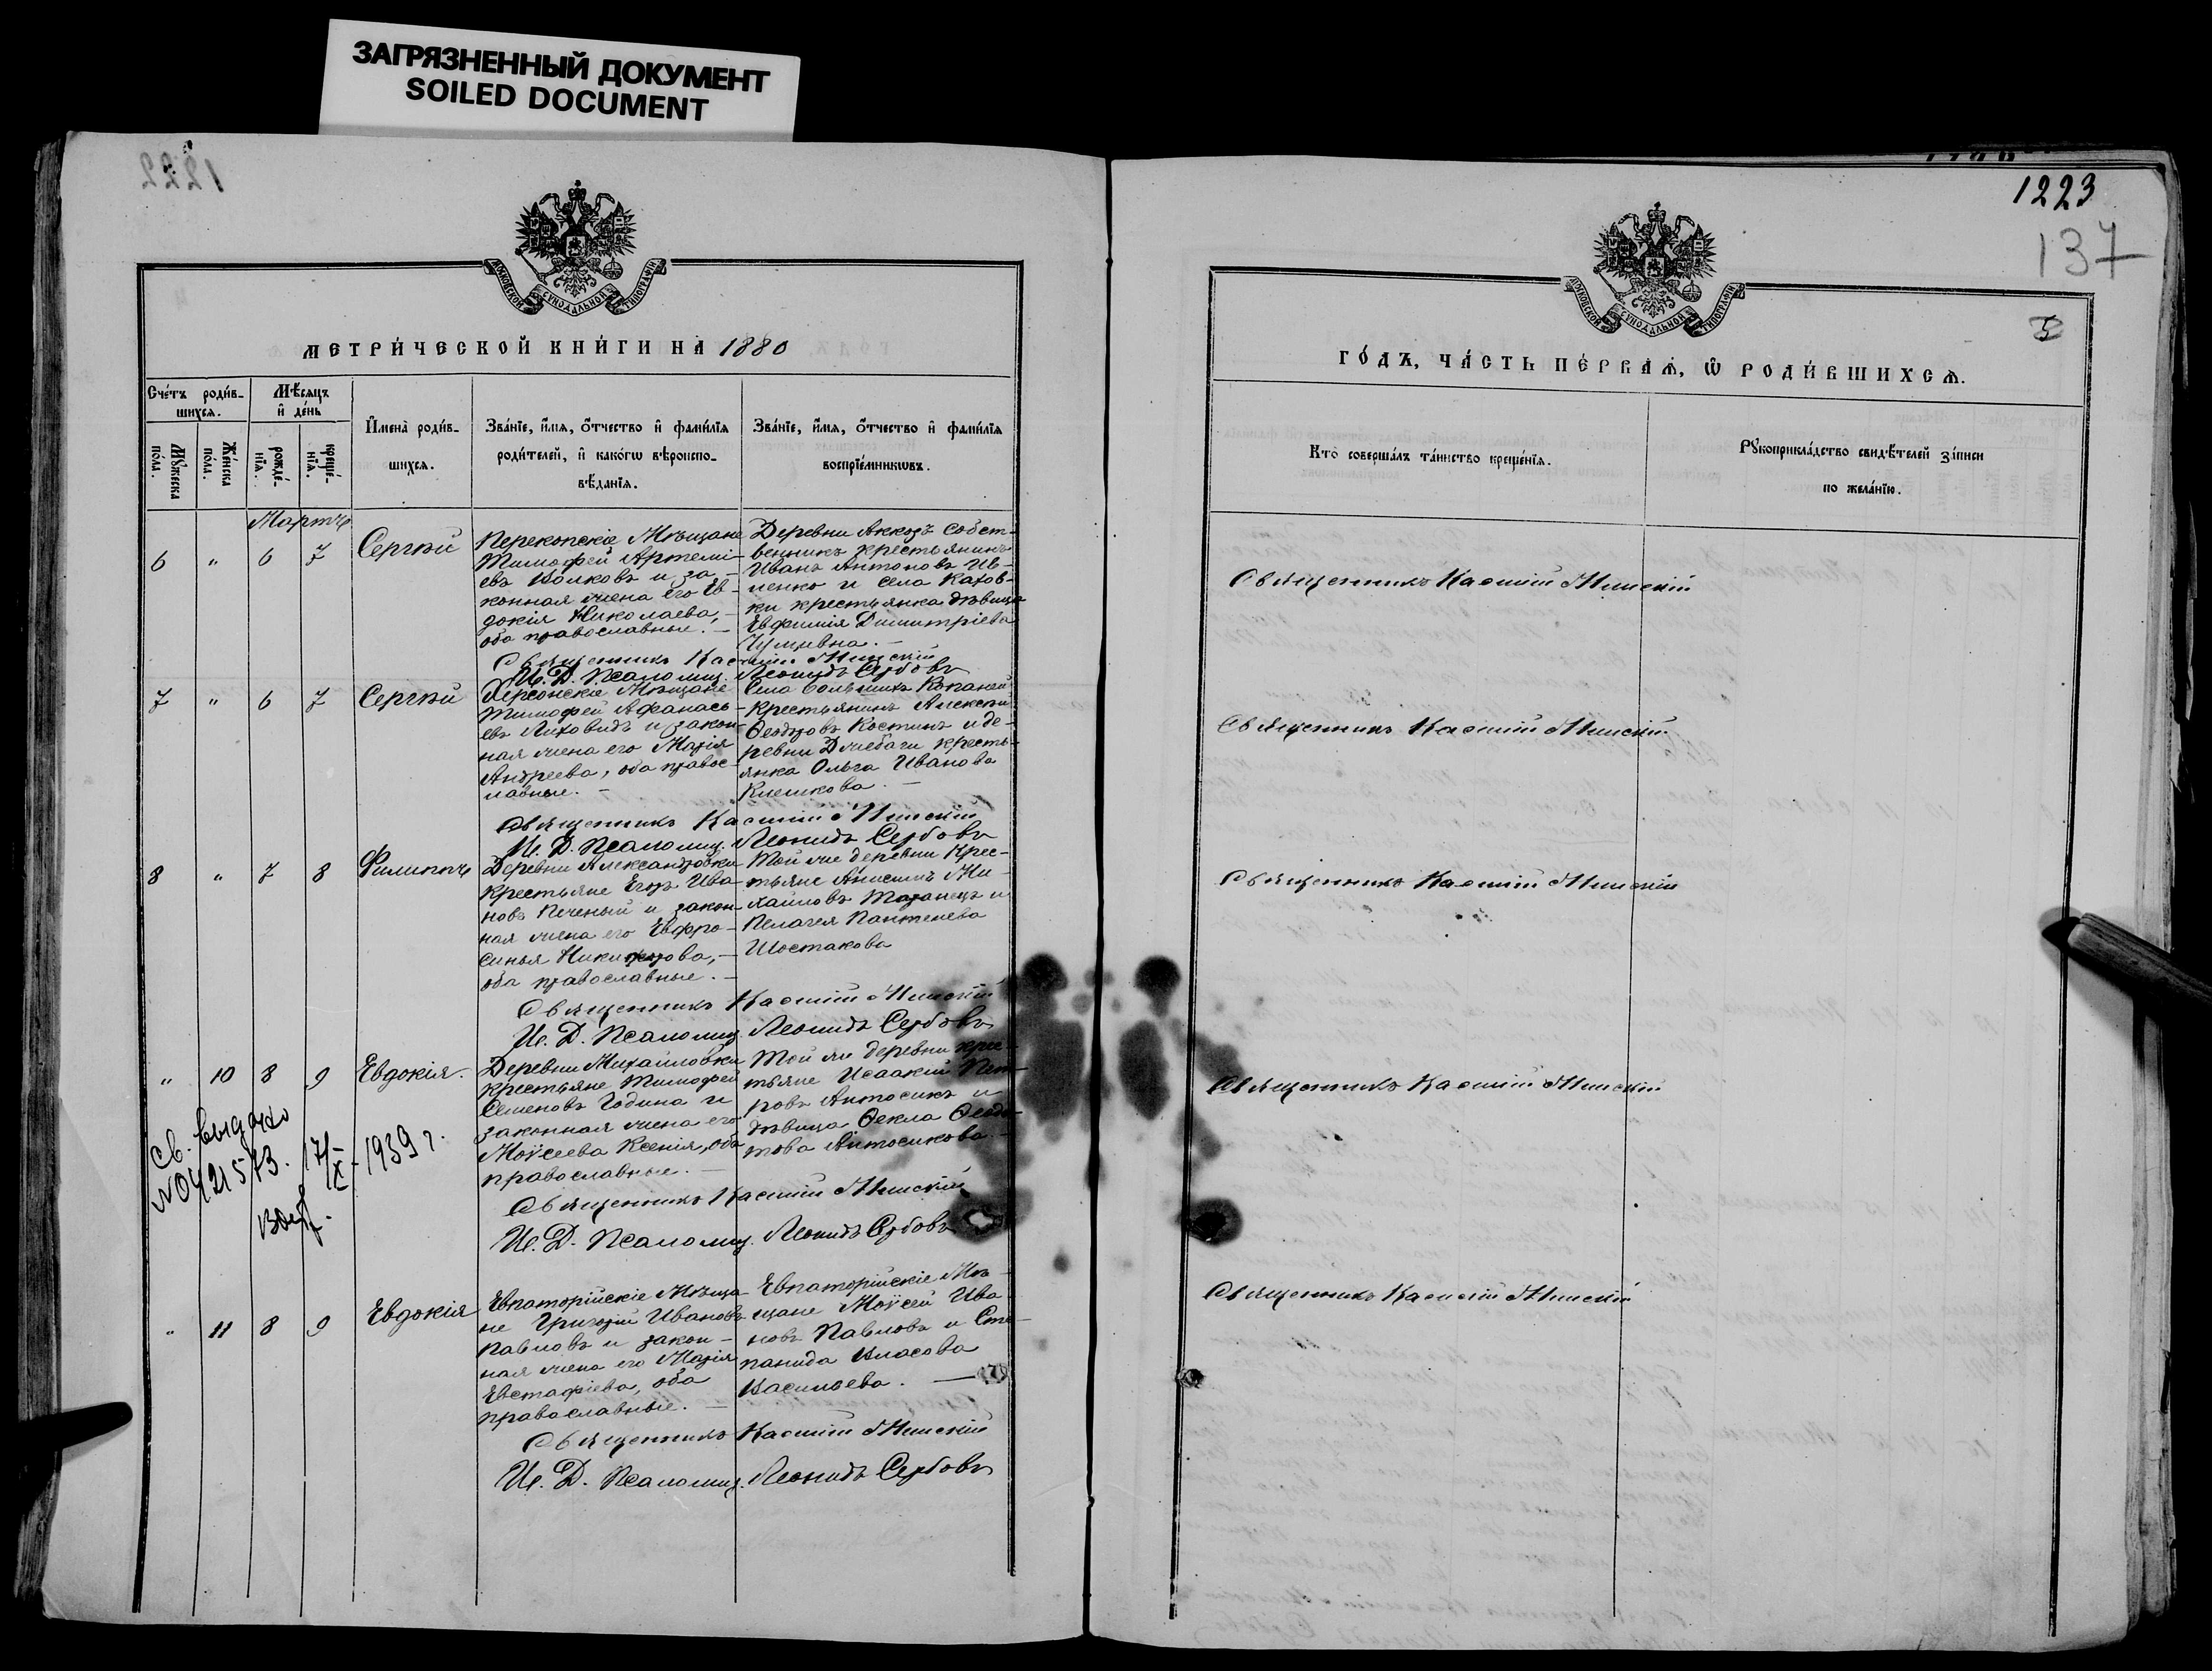 ЗАГРЯЗНЕННЫЙ ДОКУМЕНТ
SOILED DOCUMENT
1222
МОСКОВСКОЙ СѴНОДАЛЬНОЙ ТИПОГРАФІИ
МЕТРИ́ЧЕСКОЙ КНИ́ГИ НА 1880
Сче́тъ роди́в-
шихся.
Мѣ́сяцъ
и҆ де́нь
И҆мена̀ роди́в-
шихся.
Зва́нїе, и҆́мя, ѻ҆́тчество и҆ фами́лїя
роди́телей, и҆ како́гѡ вѣроиспо-
вѣ́данїя.
Зва́нїе, и҆́мя, ѻ҆́тчество и҆ фами́лїя
воспрїе́мникѡвъ.
Мꙋ́жеска
по́ла.
Же́нска
по́ла.
рожде́-
нїя.
креще́-
нїя.
Мартъ
6 " 6 7 Сергѣй
Перекопскіе Мѣщане
Тимофей Артемі-
евъ Волковъ и за-
конная жена его Ев-
докія Николаева,
оба православные. —
Деревни Аккозъ собст-
венникъ крестьянинъ
Иванъ Антоновъ Ив-
ненко и села Кахов-
ки крестьянка дѣвица
Евфимія Димитріева
Священникъ Касмій Минскій
И. Д. Псаломщ. Леонидъ Сербовъ
7 " 6 7 Сергѣй
Херсонскіе Мѣщане
Тимофей Афанась-
евъ Лиховидъ и закон-
ная жена его Марія
Андреева, оба правос-
лавные. —
Села Большихъ Копаней
крестьянинъ Алексѣй
Ѳеодоровъ Костинъ и де-
ревни Джебаги кресть-
янка Ольга Иванова
Клешкова. —
Священникъ Касмій Минскій
И. Д. Псаломщ. Леонидъ Сербовъ
8 " 7 8 Филиппъ
Деревни Александровки
крестьяне Егоръ Ива-
новъ Печеный и закон-
ная жена его Евфро-
синья Никифорова, —
оба православные. —
Той же деревни крес-
тьяне Анисимъ Ми-
хайловъ Таранецъ и
Пелагея Пантелева
Шостакова
Священникъ Касмій Минскій
И. Д. Псаломщ. Леонидъ Сербовъ
" 10 8 9 Евдокія.
Деревни Михайловки
крестьяне Тимофей
Семеновъ Година и
законная жена его
Моѵсеева Ксенія, оба
православные. —
Той же деревни крес-
тьяне Исаакій Пет-
ровъ Антосикъ и
дѣвица Ѳекла Ѳедо-
това Антосикова. —
Св. выдано
№ 0421573. 17/X - 1939 г.
Священникъ Касмій Минскій
И. Д. Псаломщ. Леонидъ Сербовъ
" 11 8 9 Евдокія
Евпаторійскіе Мѣща-
не Григорій Ивановъ
Павловъ и закон-
ная жена его Марія
Евстафіева, оба
православные. —
Евпаторійскіе Мѣ-
щане Моѵсей Ива-
новъ Павловъ и Сте-
панида Власова
Васильева. —
Священникъ Касмій Минскій
И. Д. Псаломщ. Леонидъ Сербовъ
1223
137
5
МОСКОВСКОЙ СѴНОДАЛЬНОЙ ТИПОГРАФІИ
ГО́ДЪ, ЧА́СТЬ ПЕ́РВАѦ, Ѡ҆ РОДИ́ВШИХСѦ.
Кто̀ соверша́лъ та́инство креще́нїя.
Рꙋкоприкла́дство свидѣ́телей за́писи
по жела́нїю.
Священникъ Касмій Минскій
Священникъ Касмій Минскій
Священникъ Касмій Минскій
Священникъ Касмій Минскій
Священникъ Касмій Минскій